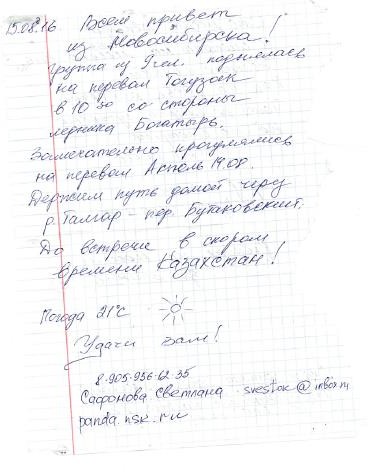 15.08.16 Всем привет
из Новосибирска!
Группа из 9 чел. поднялась
на перевал Тогузак
в 10 30 со стороны
ледника Богатырь.
Замечательно прогулялись
на перевал Аксполь 14.08.
Держим путь домой через
р. Талгар - пер. Бутаковский.
До встречи в скором
времени Казахстан!
Погода 21°C
Удачи вам!
8-905-936-62-35
Сафонова Светлана svestak@inbox.ru
panda.nsk.ru